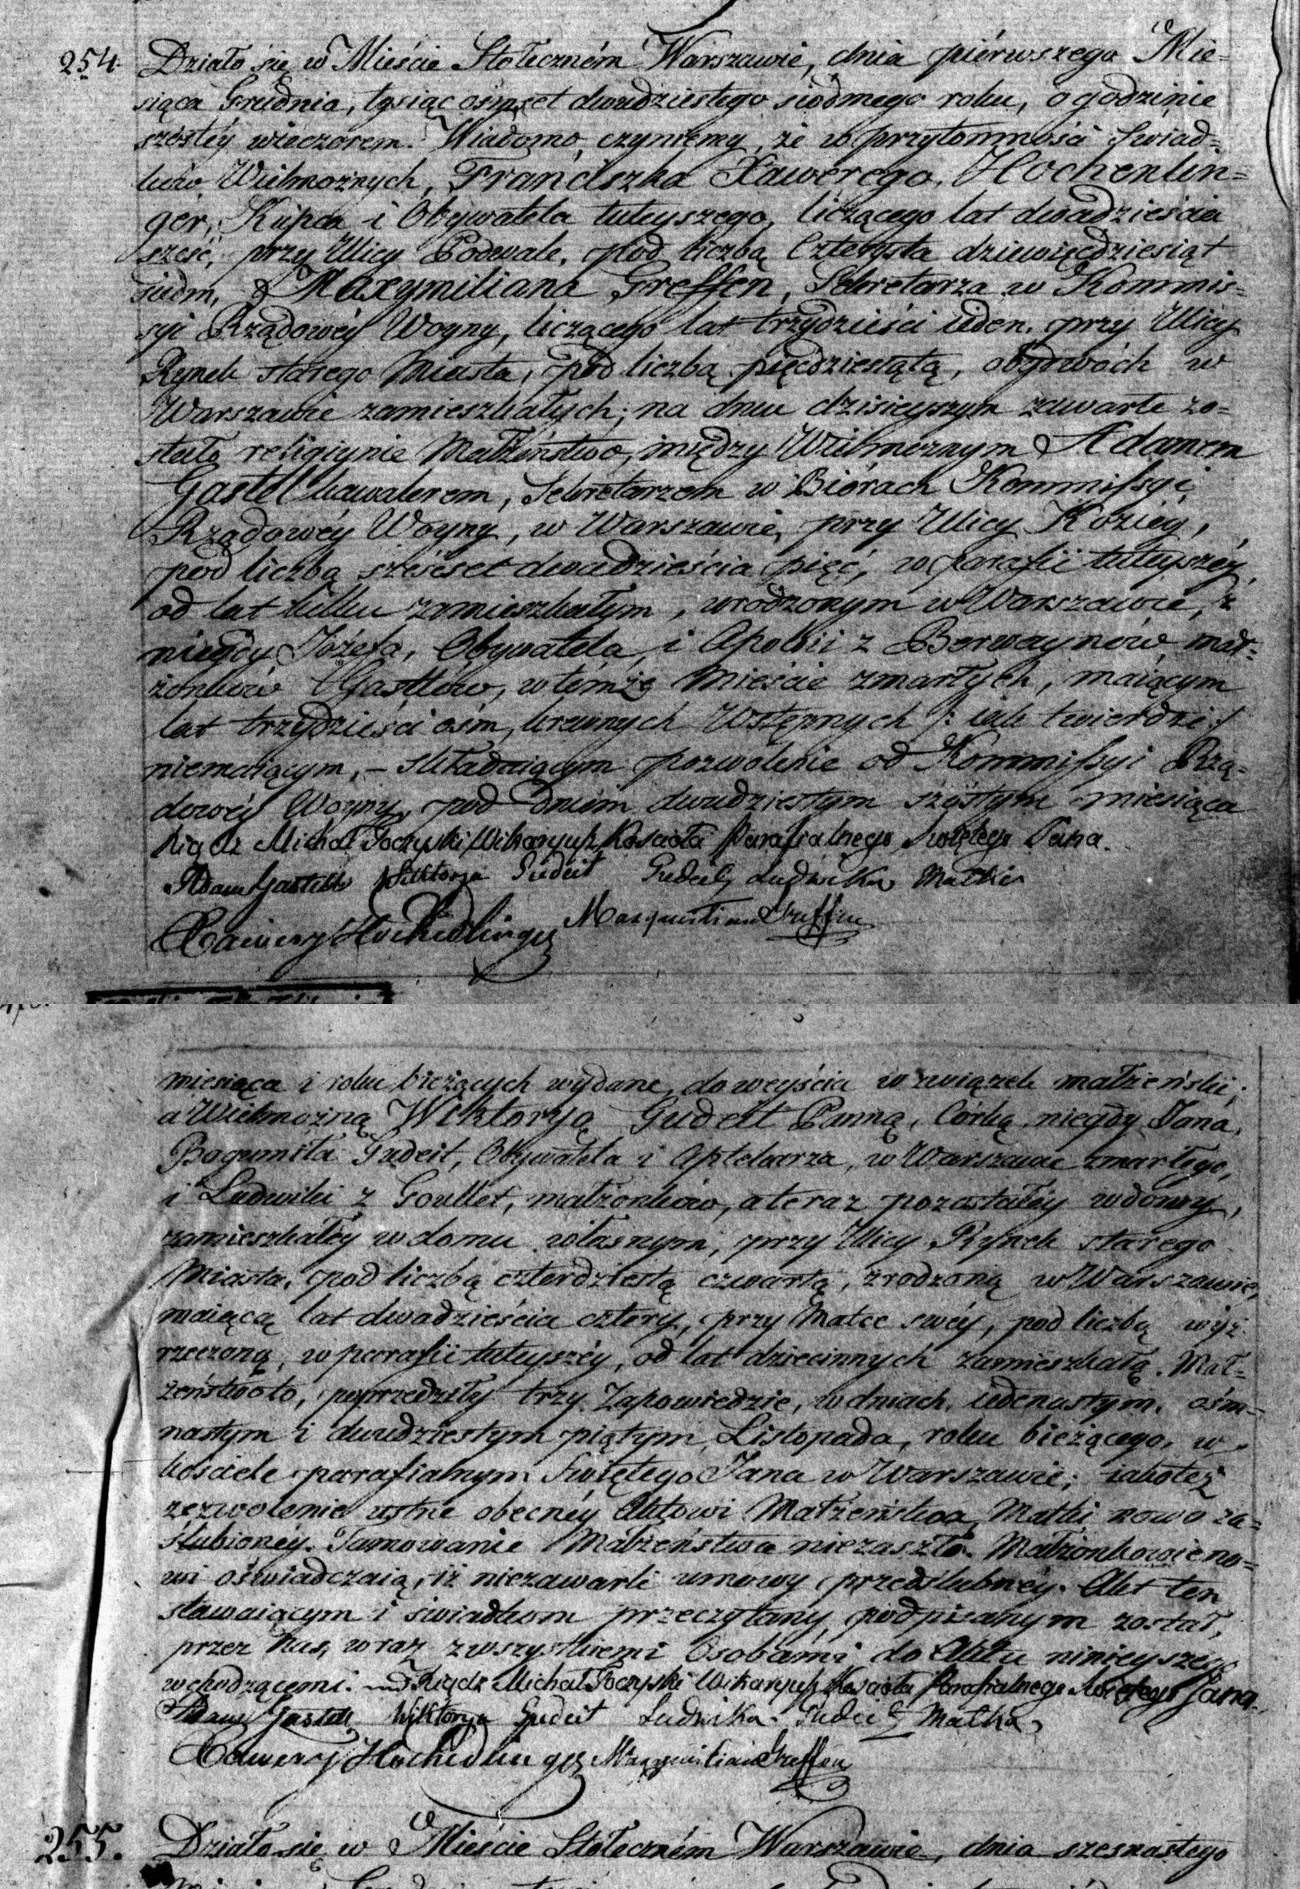 254. Działo się w Mieście Stołeczném Warszawie, dnia piérwszego Mie=
siąca Grudnia, tysiąc ośmset dwudziestego siódmego roku, o godzinie
szóstéy wieczorem. Wiadomo czyniemy, że w przytomności Świad=
ków Wielmożnych, Franciszka Xawerego Hochenlin=
ger, Kupca i Obywatela tuteyszego, liczącego lat dwadzieścia
sześć, przy Ulicy Podwale, pod liczbą Czterysta dziewięćdziesiąt
siedm, & Maxymiliana Greffen, Sekretarza w Kommis=
syi Rządowéy Woyny, liczącego lat trzydzieści ieden, przy Ulicy
Rynek starego Miasta, pod liczbą pięćdziesiątą, obydwóch w
Warszawie zamieszkałych; na dniu dzisieyszym zawarte zo=
stało religiynie Małżeństwo, między Wielmożnym Adamem
Gastel kawalerem, Sekretarzem w Biórach Kommissyi
Rządowéy Woyny, w Warszawie, przy Ulicy Koziéy,
pod liczbą sześćset dwadzieścia pięć, w parafii tuteyszéy,
od lat kilku zamieszkałym, urodzonym w Warszawie, z
niegdy Józefa, Obywatela, i Apolonii z Berwaynów, mał=
żonków Gastlów, w témże Mieście zmarłych, maiącym
lat trzydzieści ośm, krewnych Wstępnych /: iak twierdzi :/
niemaiącym, – składaiącym pozwolenie od Kommissyi Rzą=
dowéy Woyny, pod dniem dwudziestym szóstym miesiąca
Xiądz Michał Toczyski Wikaryusz Kościoła Parafialnego Świętego Jana.
Adam Gastell Wiktorya Gudeit Gudeit Ludwika Matka
Xawery Hochedlinger Maxymilian Greffen
miesiąca i roku bieżących wydane, do weyścia w związek małżeński;
a Wielmożną Wiktoryą Gudeit Panną, Córką niegdy Jana
Bogumiła Gudeit, Obywatela i Aptekarza, w Warszawie zmarłego,
i Ludwiki z Goullet, małżonków, a teraz pozostałéy wdowy,
zamieszkałéy w domu własnym, przy Ulicy Rynek starego
Miasta, pod liczbą czterdziestą czwartą, zrodzoną w Warszawie,
maiącą lat dwadzieścia cztery, przy Matce swéy, pod liczbą wyż
rzeczoną, w parafii tuteyszéy, od lat dziecinnych zamieszkałą. Mał=
żeństwo to, poprzedziły trzy Zapowiedzie, w dniach, iedenastym, ośm=
nastym i dwudziestym piątym, Listopada, roku bieżącego, w
kościele parafialnym Świętego Jana w Warszawie; iakoteż
zezwolenie ustne obecnéy Aktowi Małżeństwa, Matki nowo za=
ślubionéy. Tamowanie Małżeństwa niezaszło. Małżonkowie no=
wi oświadczaią, iż niezawarli umowy przedślubnéy. Akt ten
stawaiącym i świadkom przeczytany, podpisanym został,
przez Nas, wraz z wszystkiemi Osobami do Aktu ninieyszego
wchodzącemi. Xiądz Michał Toczyski Wikaryusz Kościoła Parafialnego Świętego Jana.
Adam Gastell Wiktorya Gudeit Ludwika Gudeit Matka
Xawery Hochedlinger Maxymilian Greffen
255. Działo się w Mieście Stołeczném Warszawie, dnia szesnastego